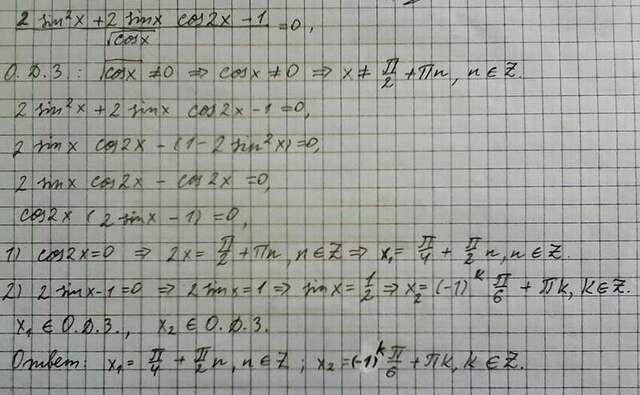 (2 sin²x + 2 sinx cos2x − 1) / √cosx = 0,
О.Д.З.: √cosx ≠ 0 ⇒ cosx ≠ 0 ⇒ x ≠ π/2 + πn, n ∈ Z.
2 sin²x + 2 sinx cos2x − 1 = 0,
2 sinx cos2x − (1 − 2 sin²x) = 0,
2 sinx cos2x − cos2x = 0,
cos2x (2 sinx − 1) = 0,
1) cos2x = 0 ⇒ 2x = π/2 + πn, n ∈ Z ⇒ x₁ = π/4 + π/2 n, n ∈ Z.
2) 2 sinx − 1 = 0 ⇒ 2 sinx = 1 ⇒ sinx = 1/2 ⇒ x₂ = (−1)^k π/6 + πk, k ∈ Z.
x₁ ∈ О.Д.З., x₂ ∈ О.Д.З.
Ответ: x₁ = π/4 + π/2 n, n ∈ Z; x₂ = (−1)^k π/6 + πk, k ∈ Z.